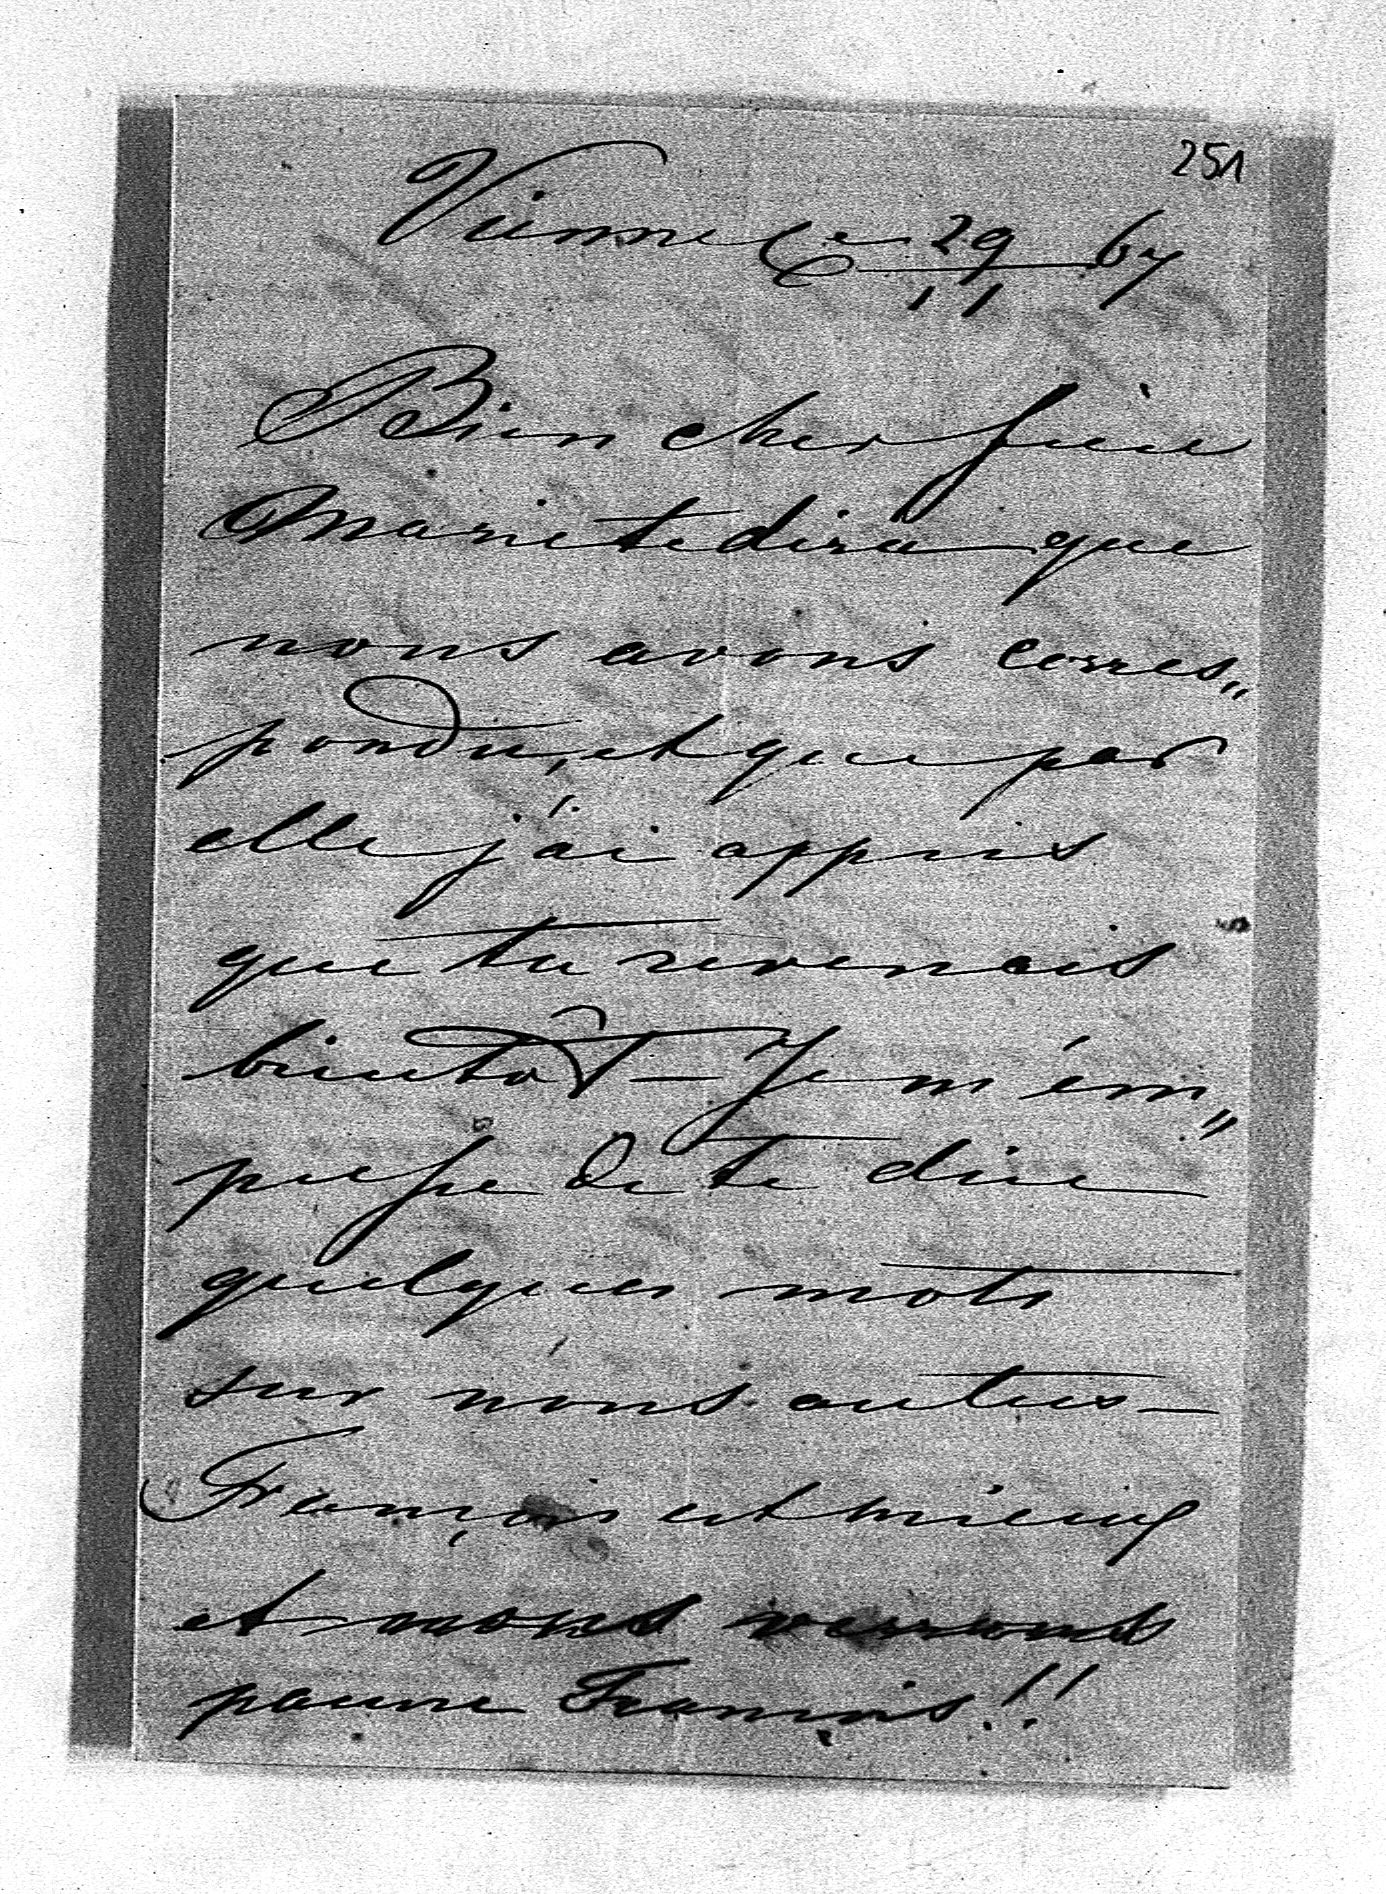 251
Vienne le 29/11 67
Bien cher frère
Marie te dira que
nous avons corres„
pondu, et que par
elle j'ai appris
que tu revenais
bientôt – Je m'em„
presse de te dire
quelques mots
sur nous autres –
François est mieux
et nous verrons
pauvre François!!